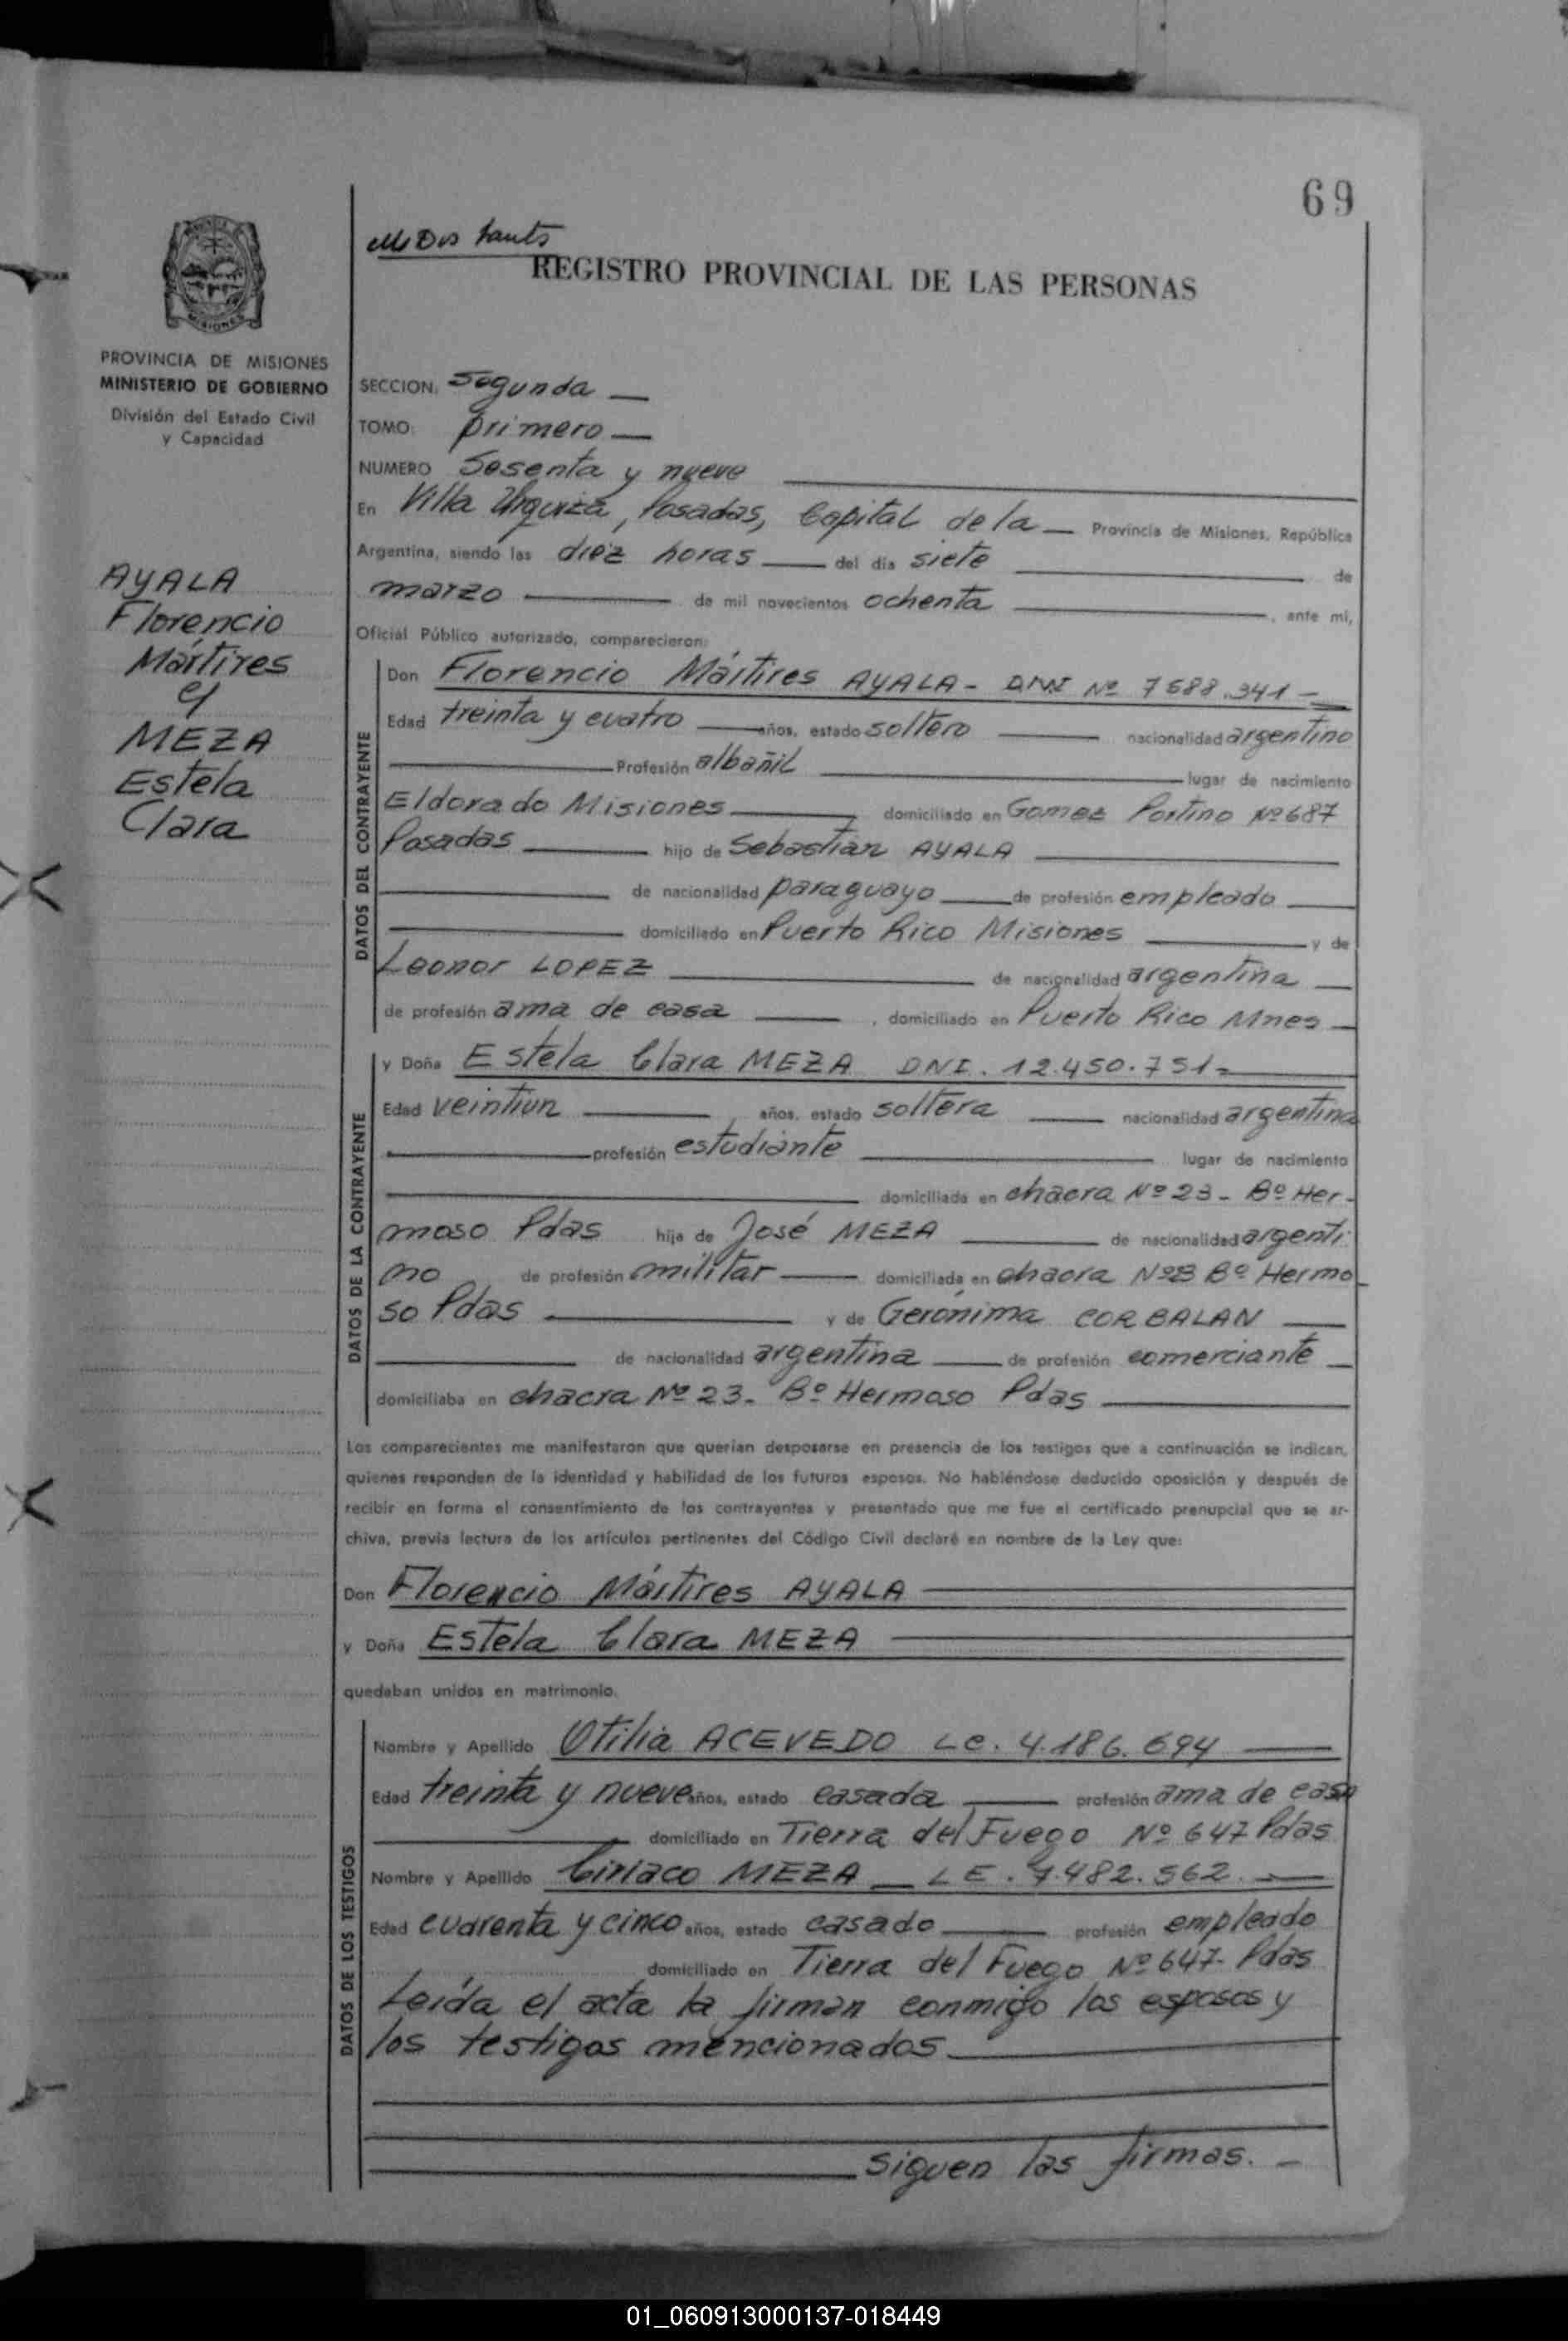 69
REGISTRO PROVINCIAL DE LAS PERSONAS
MISIONES
PROVINCIA DE MISIONES
MINISTERIO DE GOBIERNO
División del Estado Civil
y Capacidad
AYALA
Florencio
Mártires
y
MEZA
Estela
Clara
SECCION: Segunda
TOMO: primero
NUMERO Sesenta y nueve
En Villa Urquiza, Posadas, Capital de la Provincia de Misiones, República
Argentina, siendo las diez horas del día siete de
marzo de mil novecientos ochenta, ante mi,
Oficial Público autorizado, comparecieron:
DATOS DEL CONTRAYENTE
Don Florencio Mártires AYALA - DNI Nº 7688.341 -
Edad treinta y cuatro años, estado soltero nacionalidad argentino
Profesión albañil lugar de nacimiento
Eldorado Misiones domiciliado en Gomez Portino Nº 687
Posadas hijo de Sebastián AYALA
de nacionalidad paraguayo de profesión empleado
domiciliado en Puerto Rico Misiones y de
Leonor LOPEZ de nacionalidad argentina
de profesión ama de casa, domiciliado en Puerto Rico Mnes
DATOS DE LA CONTRAYENTE
y Doña Estela Clara MEZA DNI. 12.450.751=
Edad veintiun años, estado soltera nacionalidad argentina
profesión estudiante lugar de nacimiento
domiciliada en chacra Nº 23 - Bº Her-
moso Pdas hija de José MEZA de nacionalidad argenti
no de profesión militar domiciliada en chacra Bº Hermo
so Pdas y de Gerónima CORBALAN
de nacionalidad argentina de profesión comerciante
domiciliaba en chacra Nº 23. Bº Hermoso Pdas
Los comparecientes me manifestaron que querían desposarse en presencia de los testigos que a continuación se indican,
quienes responden de la identidad y habilidad de los futuros esposos. No habiéndose deducido oposición y después de
recibir en forma el consentimiento de los contrayentes y presentado que me fue el certificado prenupcial que se ar-
chiva, previa lectura de los artículos pertinentes del Código Civil declaré en nombre de la Ley que:
Don Florencio Mártires AYALA
y Doña Estela Clara MEZA
quedaban unidos en matrimonio.
DATOS DE LOS TESTIGOS
Nombre y Apellido Otilia ACEVEDO LC. 4.186.694
Edad treinta y nueve años, estado casada profesión ama de casa
domiciliado en Tierra del Fuego Nº 647 Pdas
Nombre y Apellido Ciriaco MEZA LE. 7.482.562
Edad cuarenta y cinco años, estado casado profesión empleado
domiciliado en Tierra del Fuego Nº 647- Pdas
Leída el acta la firman conmigo los esposos y
los testigos mencionados
Siguen las firmas. -
01_060913000137-018449